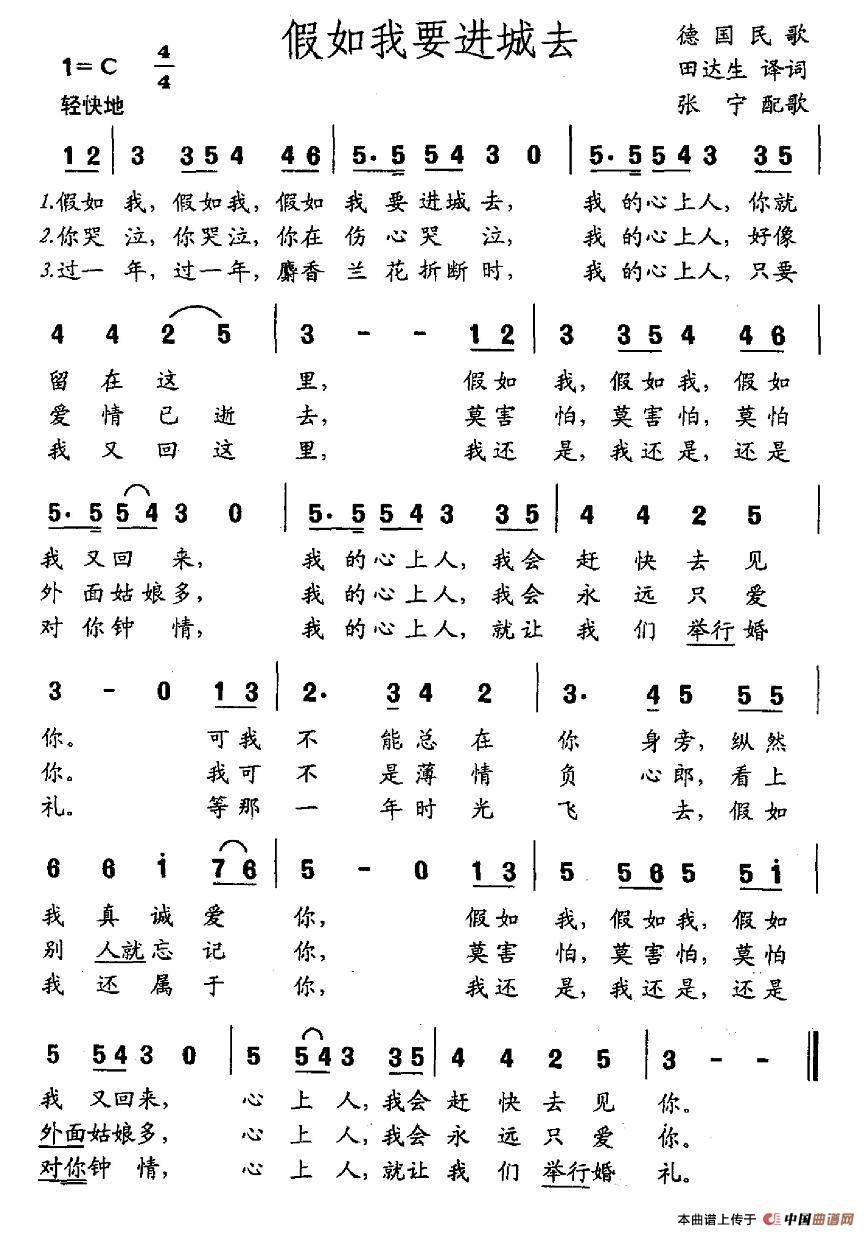 假如我要进城去
德国民歌
1=C 4/4
田达生 译词
轻快地
张 宁 配歌
1 2 | 3 3 5 4 4 6 | 5· 5 5 4 3 0 | 5· 5 5 4 3 3 5 |
1.假如 我，假如我，假如 我 要进城去， 我 的心上人，你就
2.你哭 泣，你哭泣，你在 伤 心哭 泣， 我 的心上人，好像
3.过一 年，过一年，麝香 兰 花折断时， 我 的心上人，只要
4 4 2 5 | 3 - - 1 2 | 3 3 5 4 4 6 |
留 在 这 里， 假如 我，假如我，假如
爱 情 已 逝 去， 莫害 怕，莫害怕，莫怕
我 又 回 这 里， 我还 是，我还是，还是
5· 5 5 4 3 0 | 5· 5 5 4 3 3 5 | 4 4 2 5 |
我 又回 来， 我 的心上人，我会 赶 快 去 见
外 面姑娘多， 我 的心上人，我会 永 远 只 爱
对 你钟 情， 我 的心上人，就让 我 们 举行 婚
3 - 0 1 3 | 2· 3 4 2 | 3· 4 5 5 5 |
你。 可我 不 能总 在 你 身旁，纵然
你。 我可 不 是薄 情 负 心郎，看上
礼。 等那 一 年时 光 飞 去，假如
6 6 i 7 6 | 5 - 0 1 3 | 5 5 6 5 5 i |
我 真 诚 爱 你， 假如 我，假如我，假如
别 人就 忘 记 你， 莫害 怕，莫害怕，莫怕
我 还 属 于 你， 我还 是，我还是，还是
5 5 4 3 0 | 5 5 4 3 3 5 | 4 4 2 5 | 3 - - ‖
我 又回来， 心 上 人，我会 赶 快 去 见 你。
外面姑娘多， 心 上 人，我会 永 远 只 爱 你。
对你钟 情， 心 上 人，就让 我 们 举行婚 礼。
本曲谱上传于 中国曲谱网